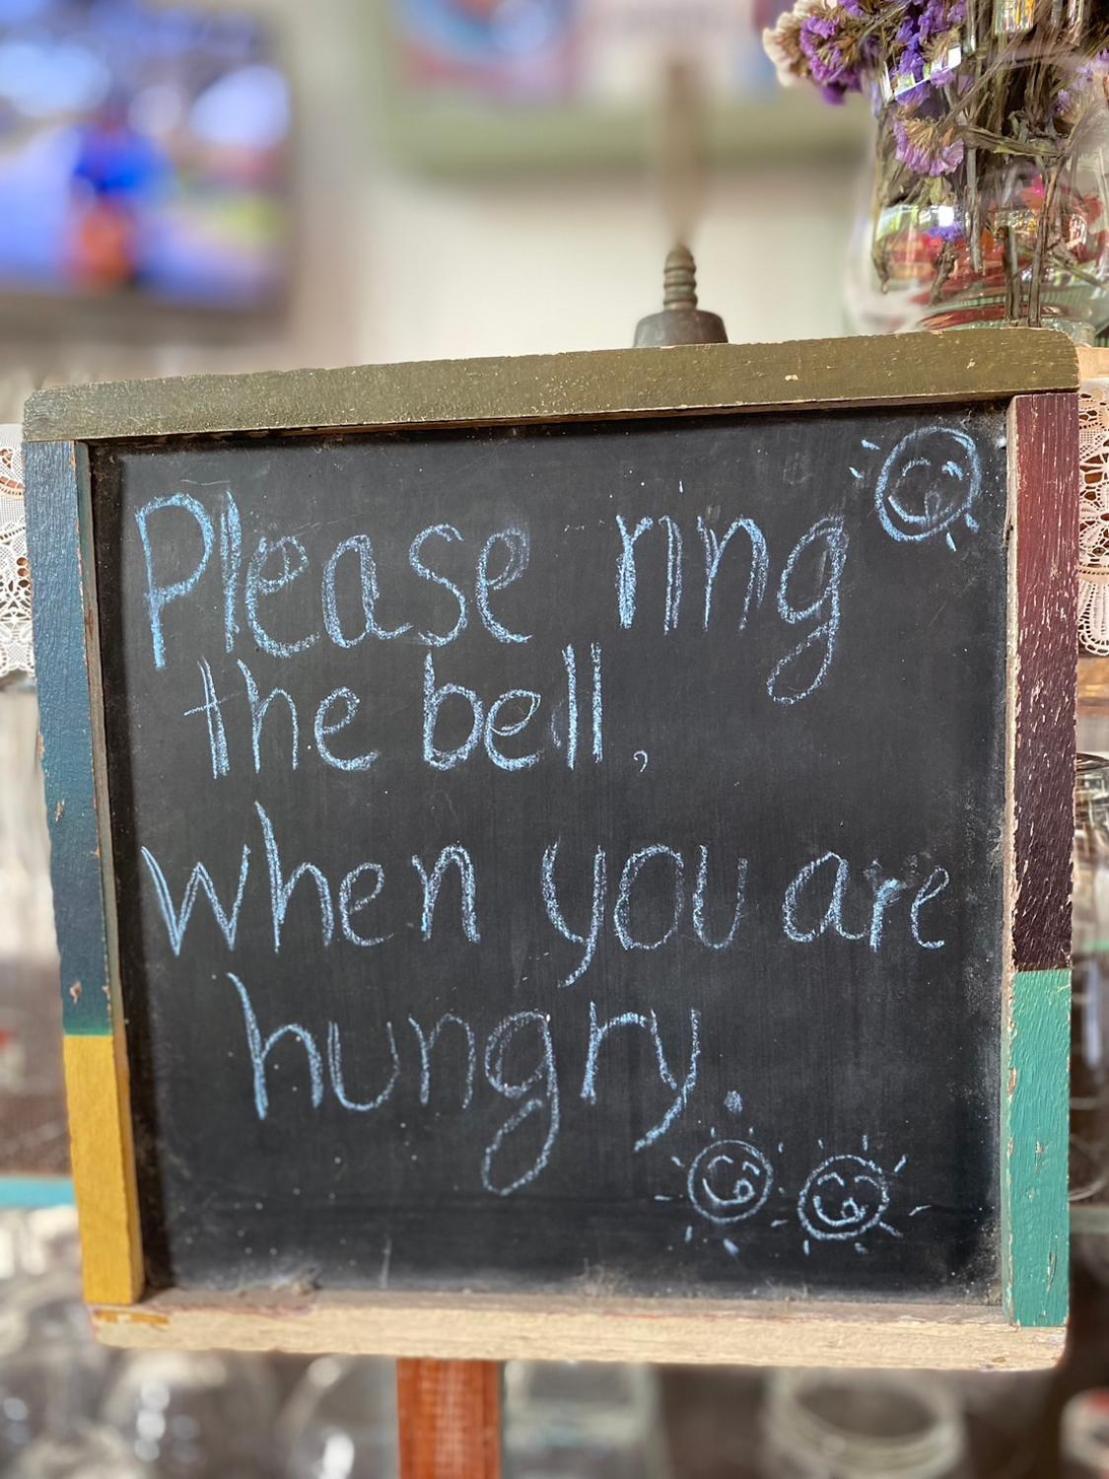 Please ring
the bell,
when you are
hungry.